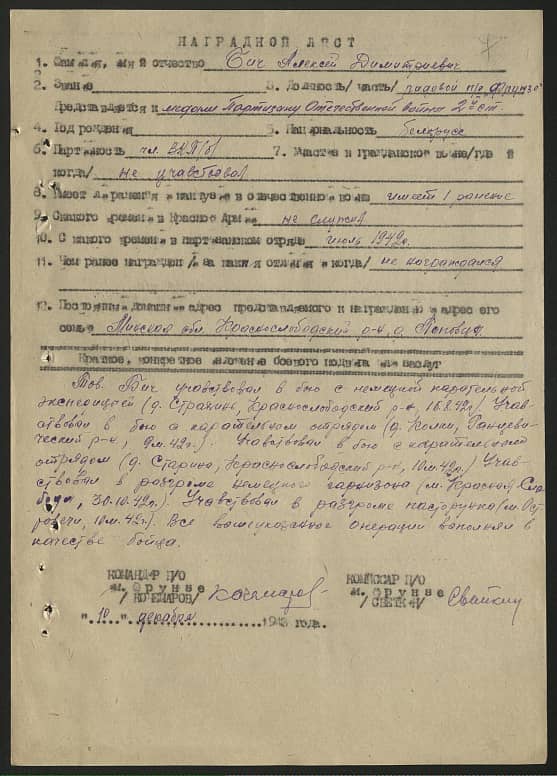 НАГРАДНОЙ ЛИСТ
1. Фамилия, имя и отчество Бич Алексей Димитриевич
2. Звание 3. Должность/часть/ рядовой п/о Фрунзе
Представляется к медали Партизану Отечественной войны 2й ст.
4. Год рождения 5. Национальность белорусс
6. Партийность чл. ВЛКСМ 7. Участие в гражданской войне/где и
когда/ не учавствовал
8. Имеет ли ранения и контузии в отечественной войне имеет 1 ранение
9. С какого времени в Красной Армии не служил
10. С какого времени в партизанском отряде июль 1942г.
11. Чем ранее награжден /за какие отличия и когда/ не награждался
12. Постоянный домашний адрес представляемого к награждению и адрес его
семьи Минская обл. Краснослободский р-н, д.
Краткое, конкретное изложение боевого подвига или заслуг
Тов. Бич учавствовал в бою с немецкой карательной
экспедицией (д. Страхинь, Краснослободский р-н, 16.8.42г.) Учав-
ствовал в бою с карательным отрядом (д. Колки, Ганцеви-
ческий р-н, 9м.42г.). Учавствовал в бою с карательным
отрядом (д. Старино, Краснослободский р-н, 10м.42г.) Учав-
ствовал в разгроме немецкого гарнизона (м. Красная Сло-
бода, 30.10.42г.). Учавствовал в разгроме (м. Ост-
ровечи, 10м.42г.). Все вышеуказанные операции выполнял в
качестве бойца.
КОМАНДИР П/О
им. ФРУНЗЕ
/КОЧЕМАРОВ/
КОМИССАР П/О
им. ФРУНЗЕ
"10" декабря 1943 года.